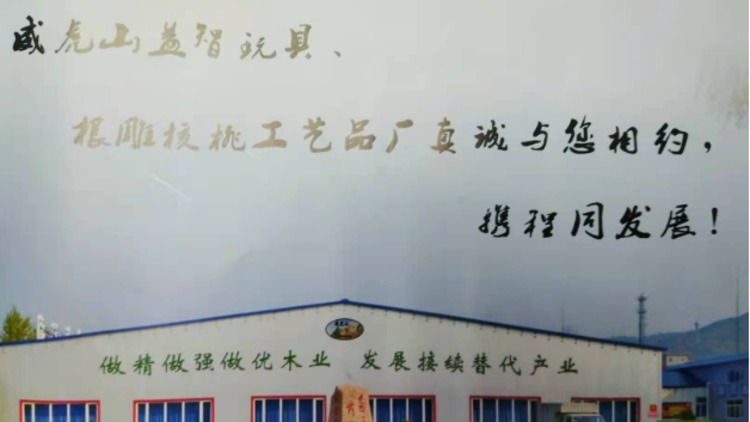 威虎山益智玩具、
根雕核桃工艺品厂真诚与您相约，
携程同发展！
做精做强做优木业 发展接续替代产业